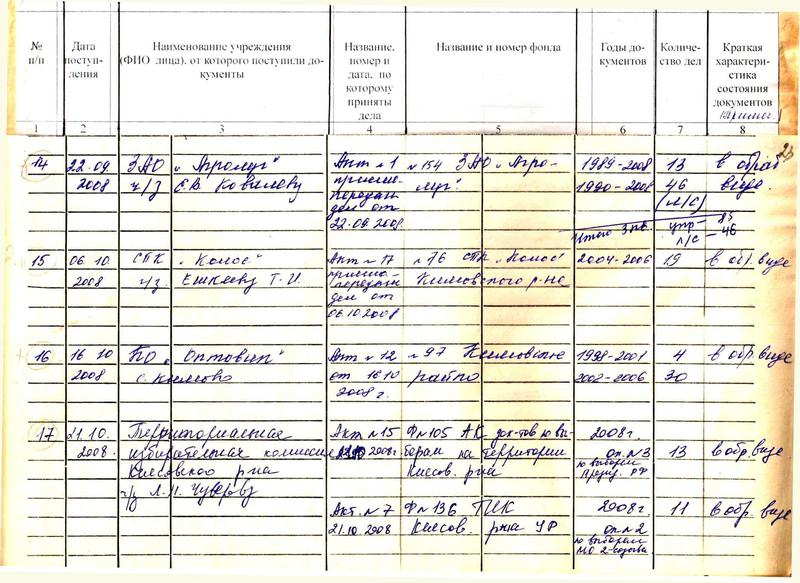 № п/п
Дата поступ-
ления
Наименование учреждения
(ФИО лица), от которого поступили до-
кументы
Название,
номер и
дата, по
которому
приняты
дела
Название и номер фонда
Годы до-
кументов
Количе-
ство дел
Краткая
характери-
стика
состояния
документов
1 2 3 4 5 6 7 8
14 22.09. ЗАО „Агролуг" Акт № 1 № 154 ЗАО „Агро- 1989-2008 13 в обраб
2008 ч/з Е.В. Ковалеву приема- луг". 1990-2008 46 виде.
передачи (л/с)
дел от
22.09.2008. Итого 3 кв. упр- 85
л/с - 46
15 06.10 СПК „Колос" Акт № 17 № 76 СПК „Колос" 2004-2006 19 в обр. виде
2008 ч/з. Ешкееву Т.И. приема- Киясовского р-на
передачи
дел от
06.10.2008
16 16.10 ПО „Оптовик" Акт № 12 № 97 Киясовское 1998-2001 4 в обр. виде
2008 с. Киясово от 16.10 райпо 2002-2006 30
2008 г.
17 21.10. Территориальная Акт № 15 Ф № 105 АК док-тов по вы- 2008 г.
2008. избирательная комиссия 2008 г. борам на территории оп. № 3 13 в обр. виде
Киясовского р-на Киясов. р-на по выборам
Презид. РФ
ч/з Л.П.
Акт. № 7 Ф № 136 ТИК 2008 г. 11 в обр. виде
21.10.2008 Киясов. р-на УР оп. № 2
по выборам
МО 2-созыва